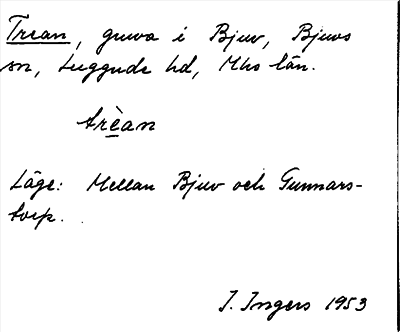 Trean, gruva i Bjuv, Bjuvs
sn, Luggude hd, Mhs län.
trèan
Läge: Mellan Bjuv och Gunnars-
torp.
I. Ingers 1953